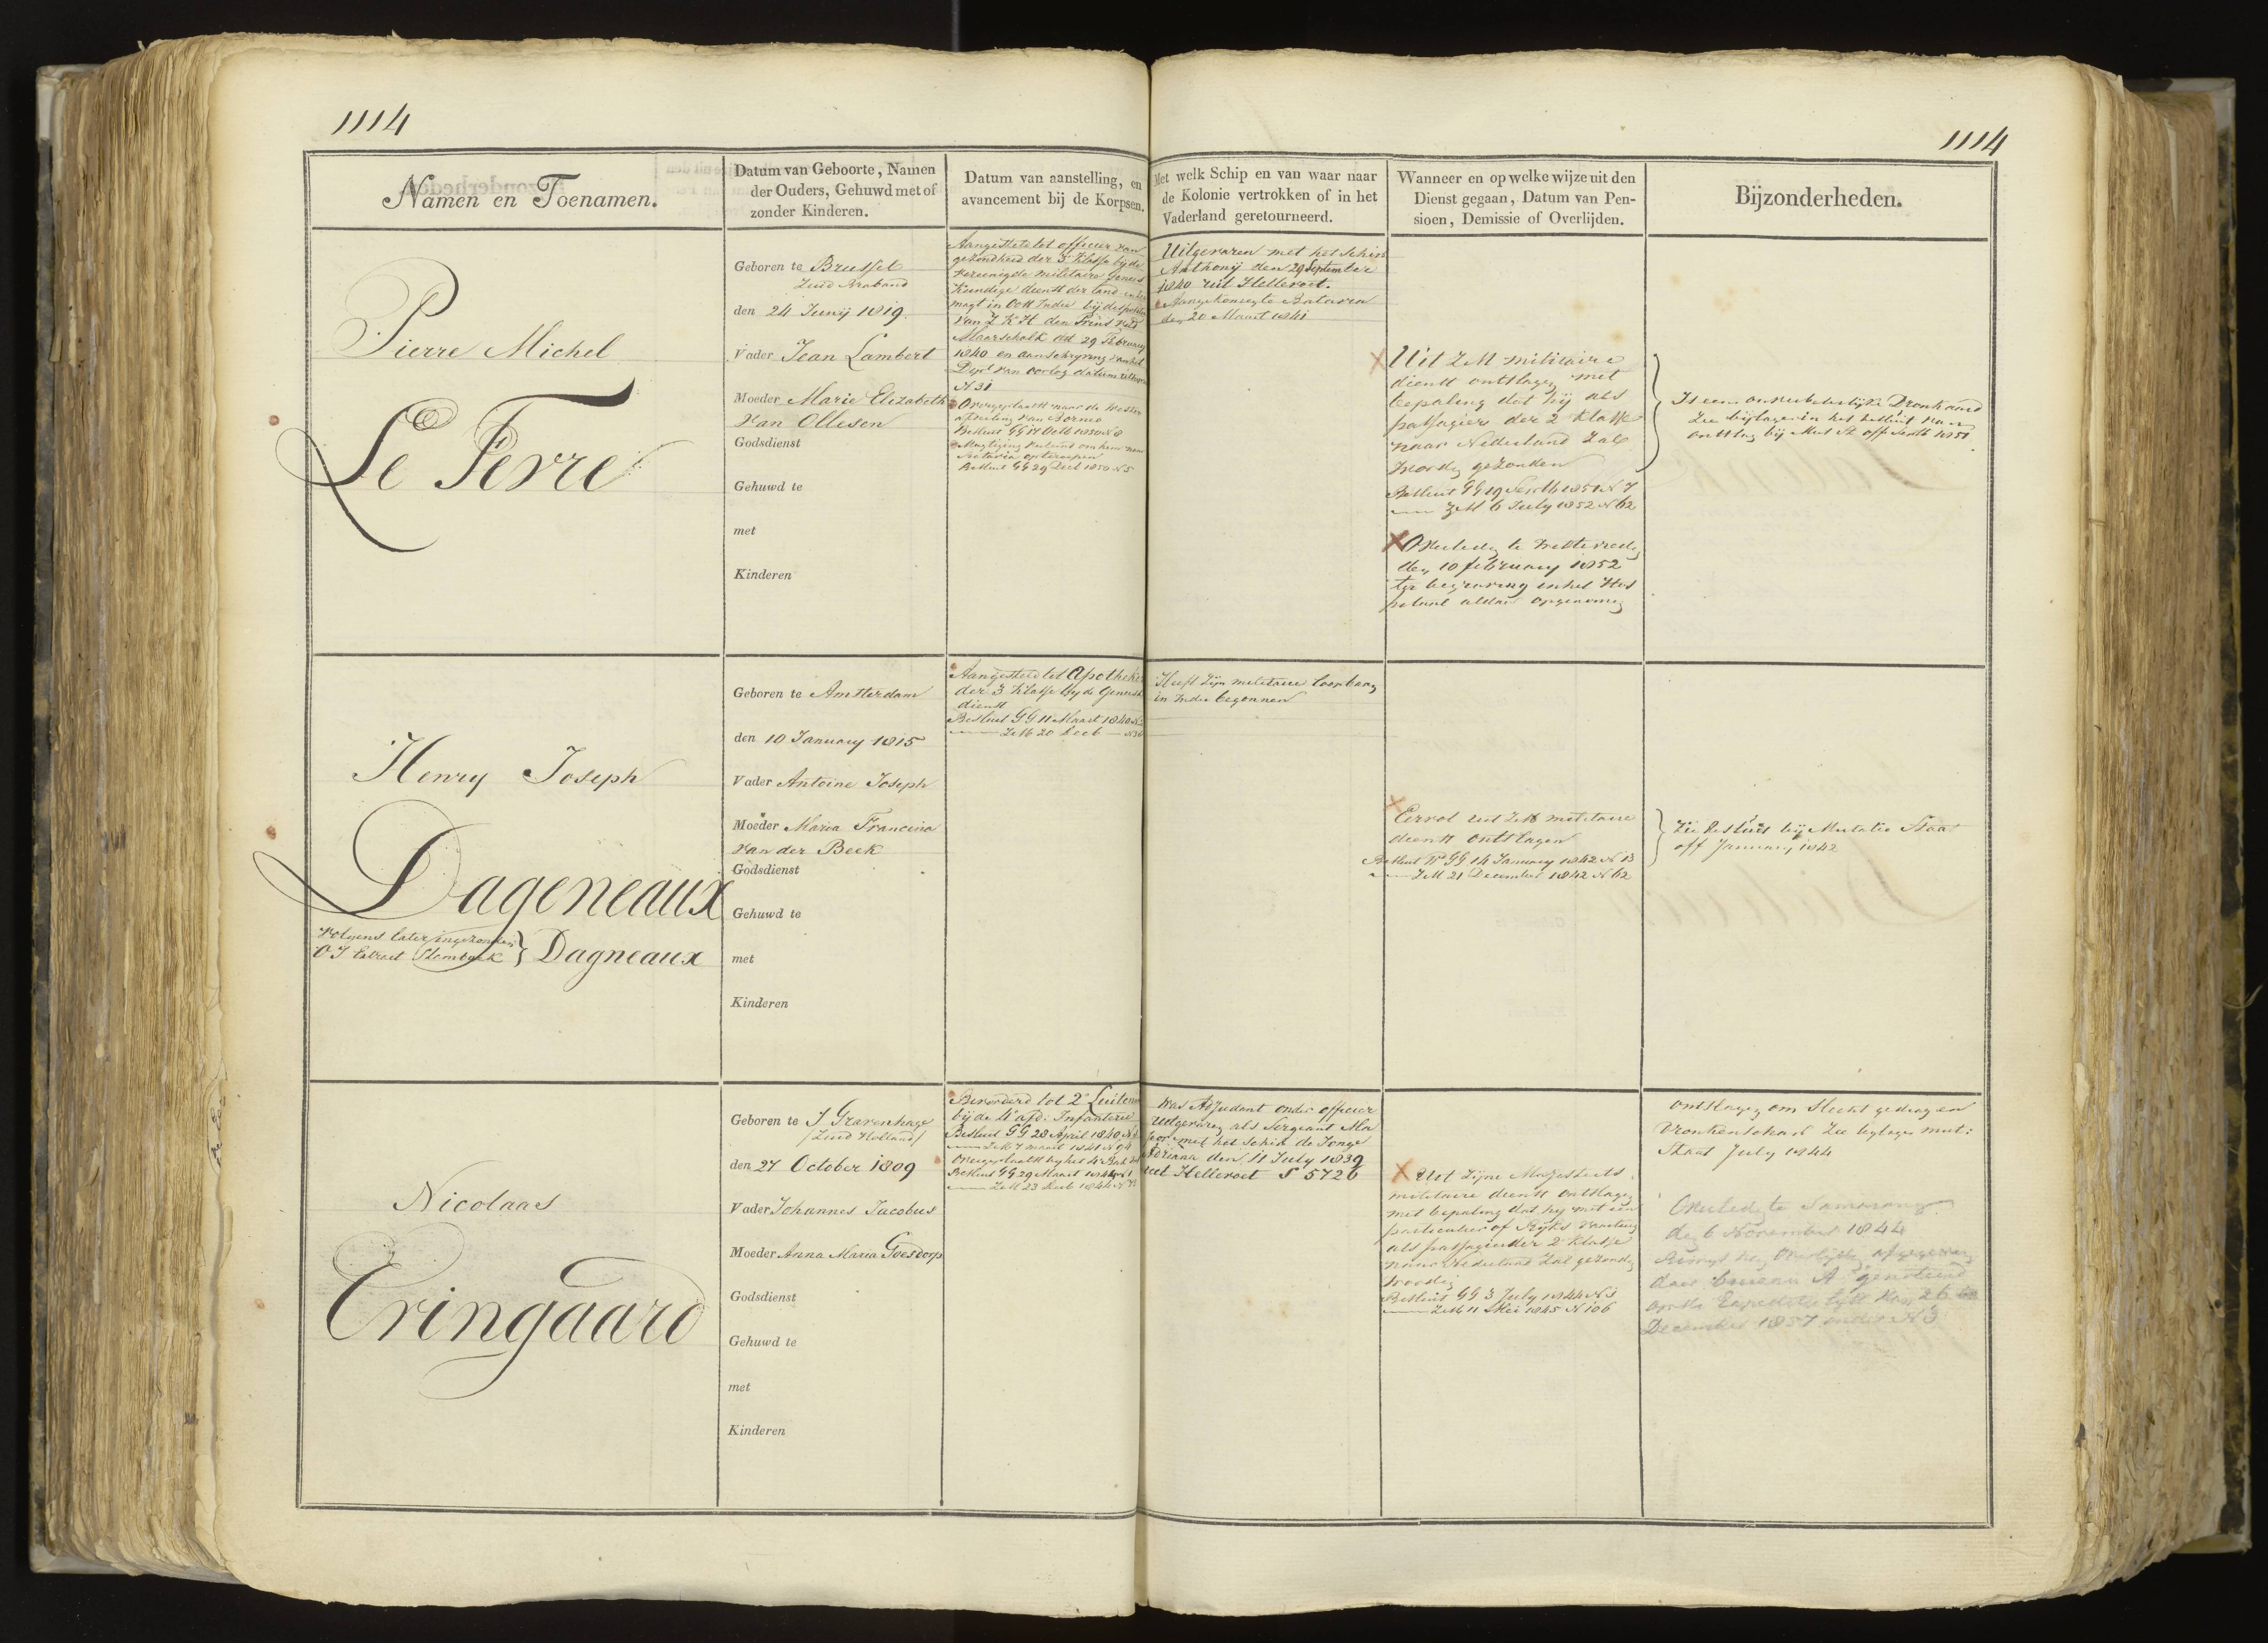 1114
1114
Namen en Toenamen.
Datum van Geboorte, Namen
der Ouders, Gehuwd met of
zonder Kinderen.
Datum van aanstelling, en
avancement bij de Korpsen.
Met welk Schip en van waar naar
de Kolonie vertrokken of in het
Vaderland geretourneerd.
Wanneer en op welke wijze uit den
Dienst gegaan, Datum van Pen-
sioen, Demissie of Overlijden.
Bijzonderheden.
Pierre Michel
Le Ferre
Geboren te Brussel
Zuid Braband
den 24 Junij 1819.
Vader Jean Lambert
Moeder Marie Elizabeth
van Ollesen
Godsdienst
Gehuwd te
met
Kinderen
Aangesteld tot officier van
gezondheid der 3e Klasse bij de
vereenigde militaire genees
kundige dienst der land en zee
magt in Oost Indie bij dispositie
van Z K H den Prins Veld
Maarschalk dd 29 February
1840 en aanschryving van het
Dept van oorlog datum
N 31
Overgeplaatst naar de Wester
afdeeling van Borneo
Besluit GG 17 Octb 1850 N 8
Magtiging verleend om hem naar
Batavia opteroepen
Besluit GG 29 Decb 1850 N 5
Uitgevaren met het Schip
Anthonij den 29 September
1840 uit Hellevoet.
Aangekomen te Batavia
den 20 Maart 1841
Uit ZM militaire
dienst ontslagen met
bepaling dat hij als
passagier der 2 Klasse
naar Nederland zal
worden gezonden
Besluit GG 19 Septb 1851 N 7
ZM 6 July 1852 N 62
Overleden te Weltevreden
den 10 february 1852
ter begraving in het Hos
pitaal aldaar opgenomen
Is een onverbeterlijke Dronkaard
Zie bijlagen in het besluit van
ontslag bij Mut St off Septb 1851
Henry Joseph
Dageneaux
Volgens later ingezonden
O I Extract Stamboek } Dagneaux
Geboren te Amsterdam
den 10 January 1815
Vader Antoine Joseph
Moeder Maria Francina
van der Beek
Godsdienst
Gehuwd te
met
Kinderen
Aangesteld tot Apotheker
der 3 Klasse by de Geneesk
dienst
Besluit GG 11 Maart 1840 N
ZM 20 Decb
Heeft zijn militaire loopbaan
in Indie begonnen
Eervol uit ZM militaire
dienst ontslagen
Besluit GG 14 January 1842 N 13
ZM 21 December 1842 N 62
Zie besluit bij Mutatie Staat
off January 1842
Nicolaas
Eringaard
Geboren te S Gravenhage
/Zuid Holland/
den 27 October 1809
Vader Johannes Jacobus
Moeder Anna Maria Goesdorp
Godsdienst
Gehuwd te
met
Kinderen
Bevorderd tot 2e Luitenant
bij de 4e afd: Infanterie
Besluit GG 28 April 1840 N
ZM 7 maart 1841 N 94
Overgeplaatst by het 4e Bat
Besluit GG 29 Maart 1844 N 1
ZM 23 Decb 1844 N
Was Adjudant onder officier
Uitgevaren als Sergeant Ma
joor met het Schip de Jonge
Adriana den 11 July 1839
uit Hellevoet S 5726
Uit Zijne Majesteits
militaire dienst ontslagen
met bepaling dat hy met een
particulier of Rijks vaartuig
als passagier der 2e klasse
naar Nederland zal gezonden
worden
Besluit GG 3 July 1844 N 3
ZM 11 Mei 1845 N 106
Ontslagen om slecht gedrag en
Dronkenschap Zie bylagen mut:
Staat July 1844
Overleden te Samarang
den 6 November 1844
afgegeven
door bureau A genoteerd
op de Expeditie lyst van 26
December 1857 onder N 3